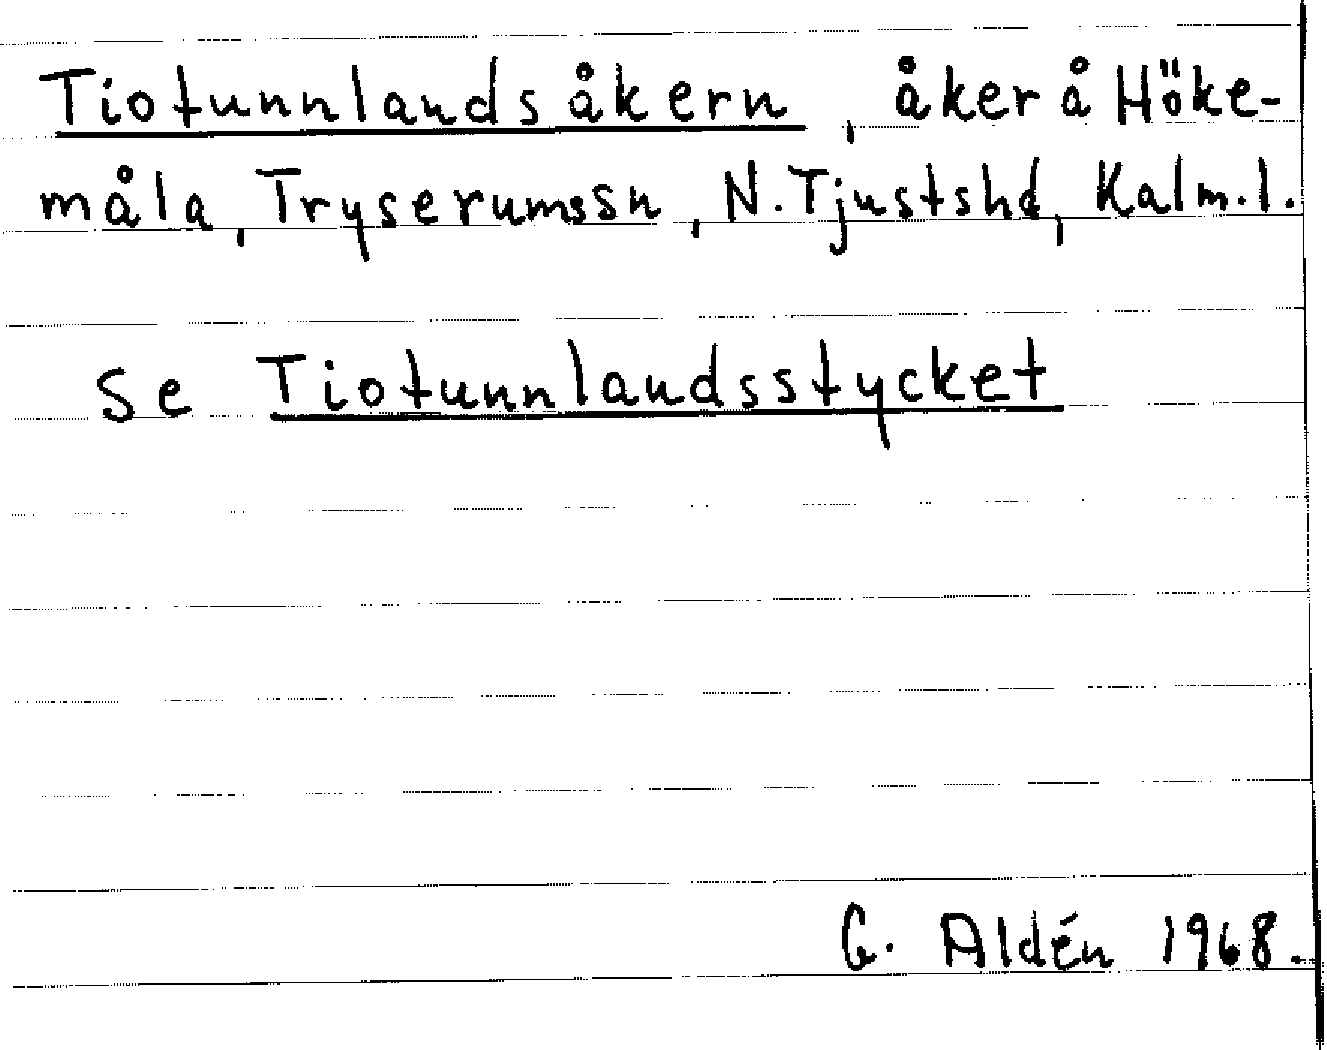 Tiotunnlandsåkern, åker å Höke-
måla, Tryserumssn, N. Tjustshd, Kalm. l.
Se Tiotunnlandsstycket
G. Aldén 1968.